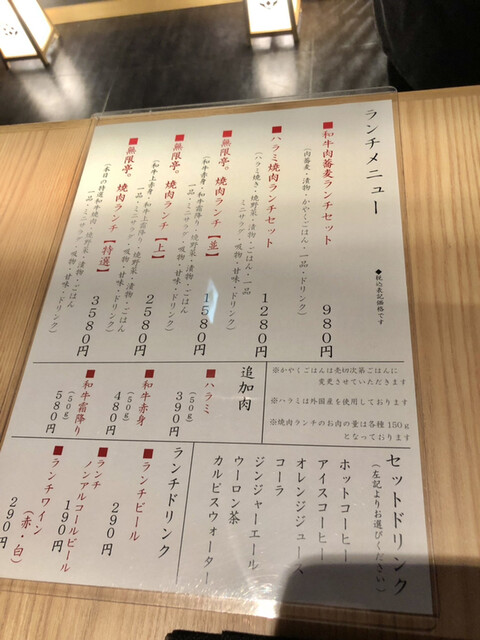 ランチメニュー
◆税込表記価格です
■和牛肉蕎麦ランチセット
(肉蕎麦・漬物・かやくごはん・一品・ドリンク)
980円
■ハラミ焼肉ランチセット
(ハラミ焼き・焼野菜・漬物・ごはん・一品
ミニサラダ・吸物・甘味・ドリンク)
1280円
■無限亭。焼肉ランチ【並】
(和牛赤身・和牛霜降り・焼野菜・漬物・ごはん
一品・ミニサラダ・吸物・甘味・ドリンク)
1580円
■無限亭。焼肉ランチ【上】
(和牛上赤身・和牛上霜降り・焼野菜・漬物・ごはん
一品・ミニサラダ・吸物・甘味・ドリンク)
2580円
■無限亭。焼肉ランチ【特選】
(本日の特選和牛焼肉・焼野菜・漬物・ごはん
一品・ミニサラダ・吸物・甘味・ドリンク)
3580円
※かやくごはんは売切次第ごはんに
変更させていただきます
※ハラミは外国産を使用しております
※焼肉ランチのお肉の量は各種150g
となっております
追加肉
■ハラミ
(50g)
390円
■和牛赤身
(50g)
480円
■和牛霜降り
(50g)
580円
セットドリンク
(左記よりお選びください)
ホットコーヒー
アイスコーヒー
オレンジジュース
コーラ
ジンジャーエール
ウーロン茶
カルピスウォーター
ランチドリンク
■ランチビール
290円
■ランチ
ノンアルコールビール
190円
■ランチワイン
(赤・白)
290円